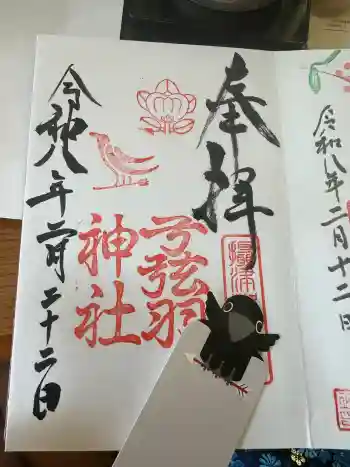 奉拝
攝津
弓弦羽
神社
令和八年二月二十二日
令和八年二月十二日